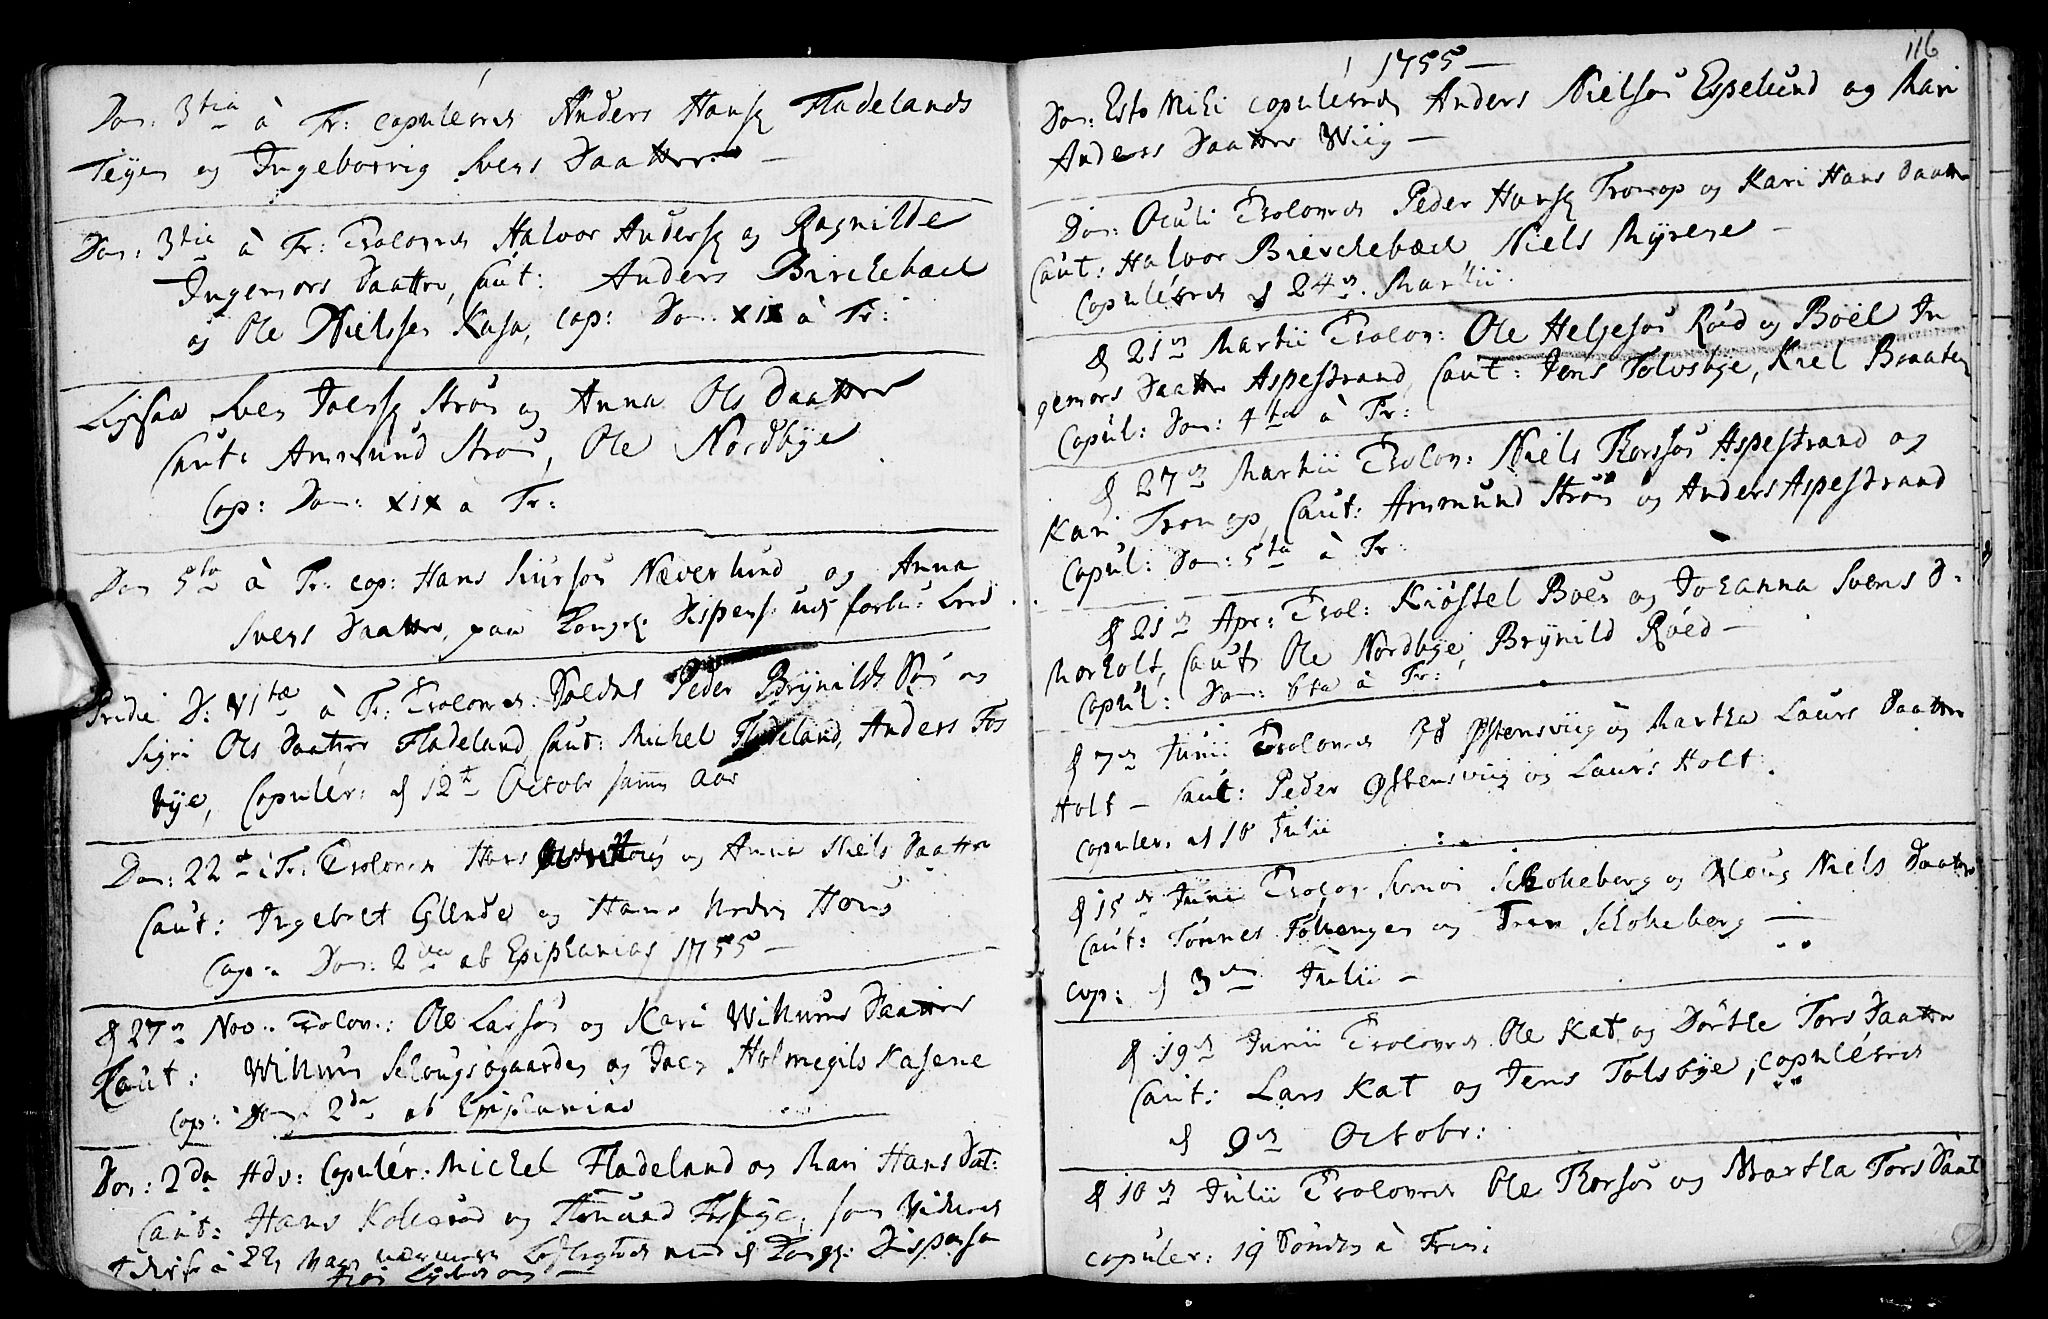 Dom: 3tia à Tr: copulered Anders Hans: Fladelands
Teÿen og Ingeborrig Svens Daatter —
Dom: 3tia à Tr: Trolovede Halvor Anders: og Ragnilde
Ingemors Daatter, Caut: Anders Birckebæck
og Ole Nielsen Kasa, cop: Dom XIX à Tr:
Ligesaa Sven Joens: Strøm og Anna Ols Daatter
Caut: Ammund Strøm, Ole Nordbÿe
Cop: Dom: XIX a Tr:
Dom 5ta à Tr: cop: Hans Siursøn Næverlund og Anna
Svens Daatter, paa Kongl: Dispens: udj forbu: Leed.
Pridie D: VItæ à Tr: Trolovede Soldat Peder Brÿnilds Søn og
Sigri Ols Daatter Fladeland, Caut: Michel Fladeland, Anders Fos
bÿe, Copuler: d 12te Octobr samme aar
Dom: 22de à Tr: Trolovede Hans Houg og Anna Niels Daatter
Caut: Ingebret Glende og Hans Houg
Cop: Dom: 2da ab Epiphanias 1755 —
d 27de Nov: Trolov: Ole Larsøn og Kari Wilhums Daatter
Caut: Wilhum Schougsogaarden og Joen Holmegils Kasene
Cop: Dom 2da ab Epiphanias
Dom: 2da Adv: Copulér: Michel Fladeland og Mari Hans Dat:
Caut: Hans Kollerød og Amund Fosbÿe, som
Mag Kongl: Dispensa
116
1755 —
Dom: Esto Mihi copulered Anders Nielsøn Espelund og Mari
Anders Daatter Wiig —
Dom: Oculi Trolovede Peder Hans: Tronrop og Kari Hans Daatter
Caut: Halvor Birckebæck, Niels Mÿrene —
Copulered d 24de Martii.
d 21de Martii Trolov: Ole Helgesøn Røed og Boel In
gemors Daatter Aspestrand, Caut: Jens Tolvsbÿe, Kiel Braaten
Copul: Dom: 4ta à Tr:
d 27de Martii Trolov: Niels Thorsøn Aspestrand og
Kari Tronrop, Caut: Ammund Strøm og Anders Aspestrand
Copul: Dom: 5ta à Tr:
d 21de Apr: Trol: Kiøstel Boer og Johanna Svens D:
Morholt, Caut: Ole Nordbÿe, Brÿnild Røed —
Copul: Dom: 6ta à Tr:
d 7de Junii Trolovede Østensviig og Martha Laurs Daatter
Holt — Caut: Peder Østensviig og Laurs Holt.
copuler: d 10 Julii
d 15de Junii Trolov: Simon Schokeberg og Oloug Niels Daatter
Caut: Tønnes Følkengen og Iver Schokeberg —
cop: d 3die Julii —
d 19de Junii Trolovede Ole Kat og Dorthe Tors Daatter
Caut: Lars Kat og Jens Tolsbÿe, copulered
d 9de Octobr:
d 10de Julii Trolovede Ole Thorsøn og Martha Tors Daat
copuler: 19 Søndag à Trin: